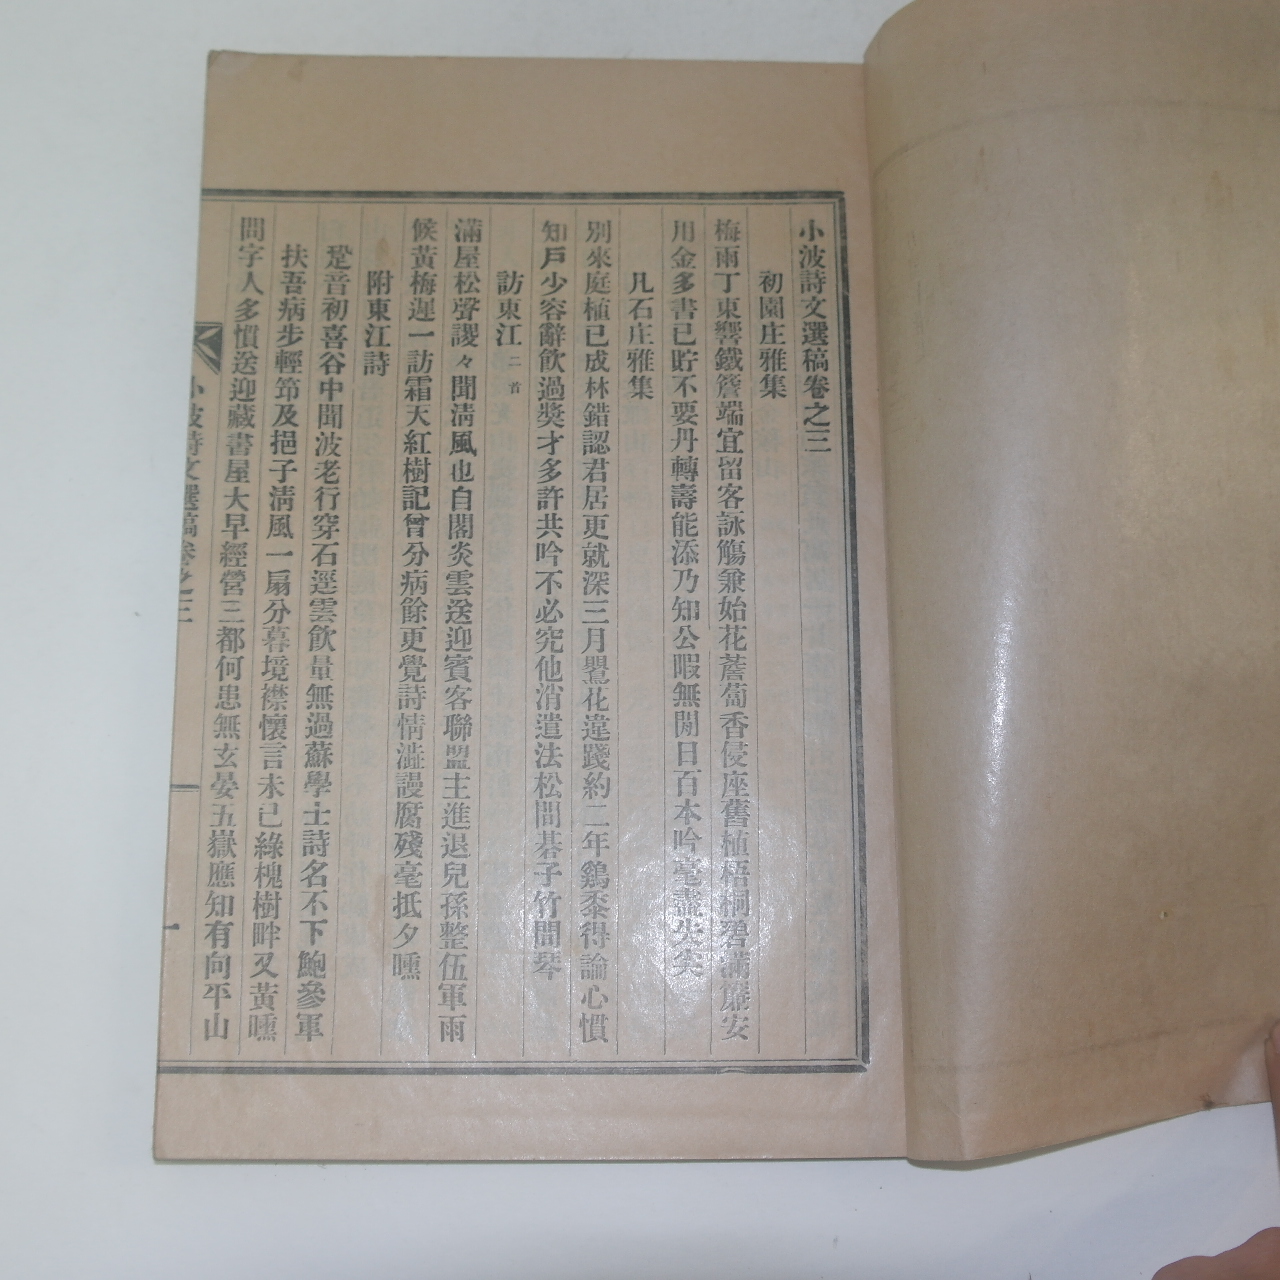 小波詩文選稿卷之三
初園庄雅集
梅雨丁東響鐵簷端宜留客詠觴兼始花薝蔔香侵座舊植梧桐碧滿簾安
用金多書已貯不要丹轉壽能添乃知公暇無閒日百本吟毫盡失尖
凡石庄雅集
別來庭植已成林錯認君居更就深三月鸎花違踐約二年鷄黍得論心慣
知戶少容辭飮過奬才多許共吟不必究他消遣法松間碁子竹間琴
訪東江 二首
滿屋松聲謖々聞淸風也自閣炎雲送迎賓客聯盟主進退兒孫整伍軍雨
候黃梅遲一訪霜天紅樹記曾分病餘更覺詩情澁謾腐殘毫抵夕曛
附東江詩
跫音初喜谷中聞波老行穿石逕雲飮量無過蘇學士詩名不下鮑參軍
扶吾病步輕筇及挹子淸風一扇分暮境襟懷言未已綠槐樹畔又黃曛
問字人多慣送迎藏書屋大早經營三都何患無玄晏五嶽應知有向平山
小波詩文選稿卷之三
一